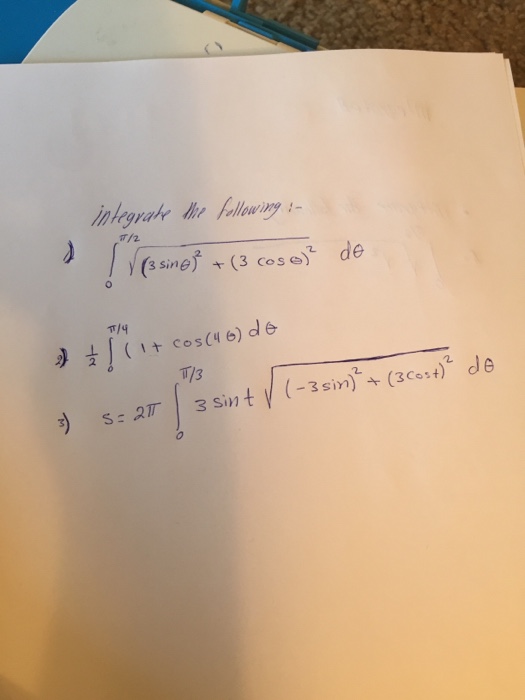 integrate the following :-
1) ∫₀^{π/2} √((3 sinθ)² + (3 cosθ)²) dθ
2) ½ ∫₀^{π/4} (1 + cos(4θ) dθ
3) S = 2π ∫₀^{π/3} 3 sin t √((-3 sin)² + (3 cos t)²) dθ